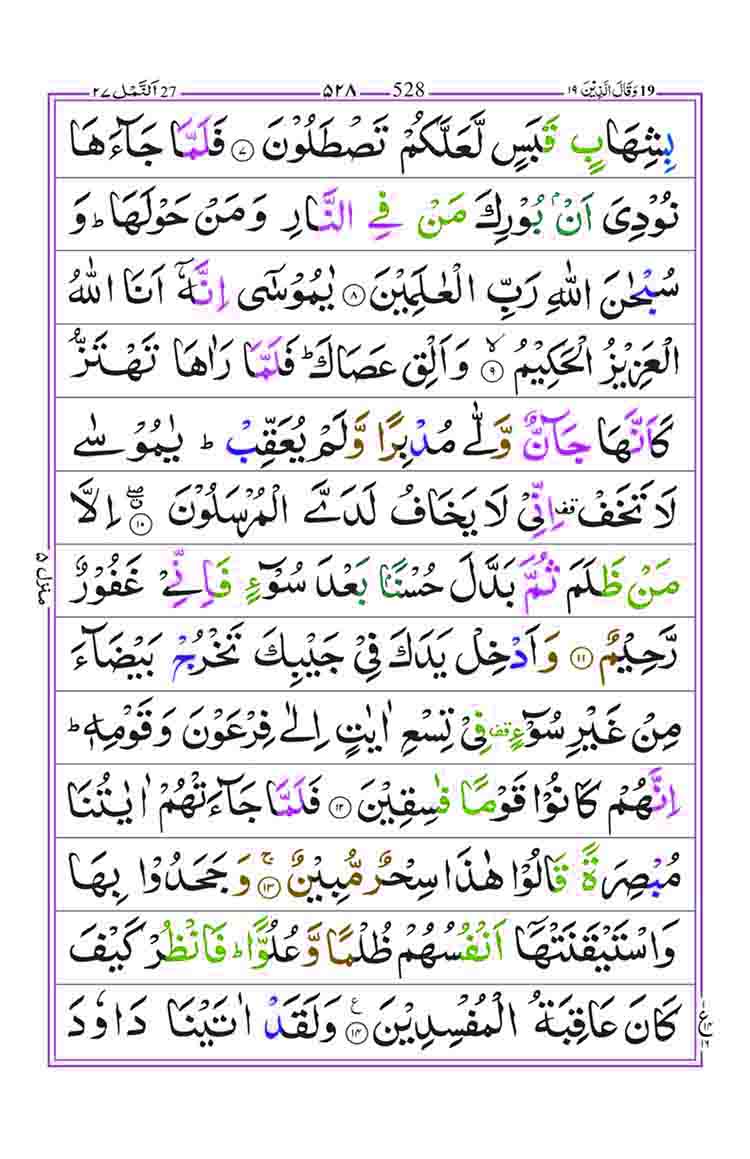 19 وَقَالَ الَّذِيْنَ ١٩ — 528 — ٥٢٨ — 27 اَلنَّمْل ٢٧
بِشِهَابٍ قَبَسٍ لَّعَلَّكُمْ تَصْطَلُوْنَ ۷ فَلَمَّا جَآءَهَا
نُوْدِىَ اَنْۢ بُوْرِكَ مَنْ فِى النَّارِ وَمَنْ حَوْلَهَا ؕ وَ
سُبْحٰنَ اللّٰهِ رَبِّ الْعٰلَمِيْنَ ۸ يٰمُوْسٰٓى اِنَّهٗۤ اَنَا اللّٰهُ
الْعَزِيْزُ الْحَكِيْمُ ۙ ۹ وَاَلْقِ عَصَاكَ ؕ فَلَمَّا رَاٰهَا تَهْتَزُّ
كَاَنَّهَا جَآنٌّ وَّلّٰى مُدْبِرًا وَّلَمْ يُعَقِّبْ ؕ يٰمُوْسٰى
لَا تَخَفْ قف اِنِّىْ لَا يَخَافُ لَدَىَّ الْمُرْسَلُوْنَ ۖ ۱۰ اِلَّا
مَنْ ظَلَمَ ثُمَّ بَدَّلَ حُسْنًۢا بَعْدَ سُوْٓءٍ فَاِنِّىْ غَفُوْرٌ
رَّحِيْمٌ ۱۱ وَاَدْخِلْ يَدَكَ فِىْ جَيْبِكَ تَخْرُجْ بَيْضَآءَ
مِنْ غَيْرِ سُوْٓءٍ قف فِىْ تِسْعِ اٰيٰتٍ اِلٰى فِرْعَوْنَ وَقَوْمِهٖ ؕ
اِنَّهُمْ كَانُوْا قَوْمًا فٰسِقِيْنَ ۱۲ فَلَمَّا جَآءَتْهُمْ اٰيٰتُنَا
مُبْصِرَةً قَالُوْا هٰذَا سِحْرٌ مُّبِيْنٌ ۚ ۱۳ وَجَحَدُوْا بِهَا
وَاسْتَيْقَنَتْهَاۤ اَنْفُسُهُمْ ظُلْمًا وَّعُلُوًّا ؕ فَانْظُرْ كَيْفَ
كَانَ عَاقِبَةُ الْمُفْسِدِيْنَ ع ۱۴ وَلَقَدْ اٰتَيْنَا دَاوٗدَ
منزل ۵